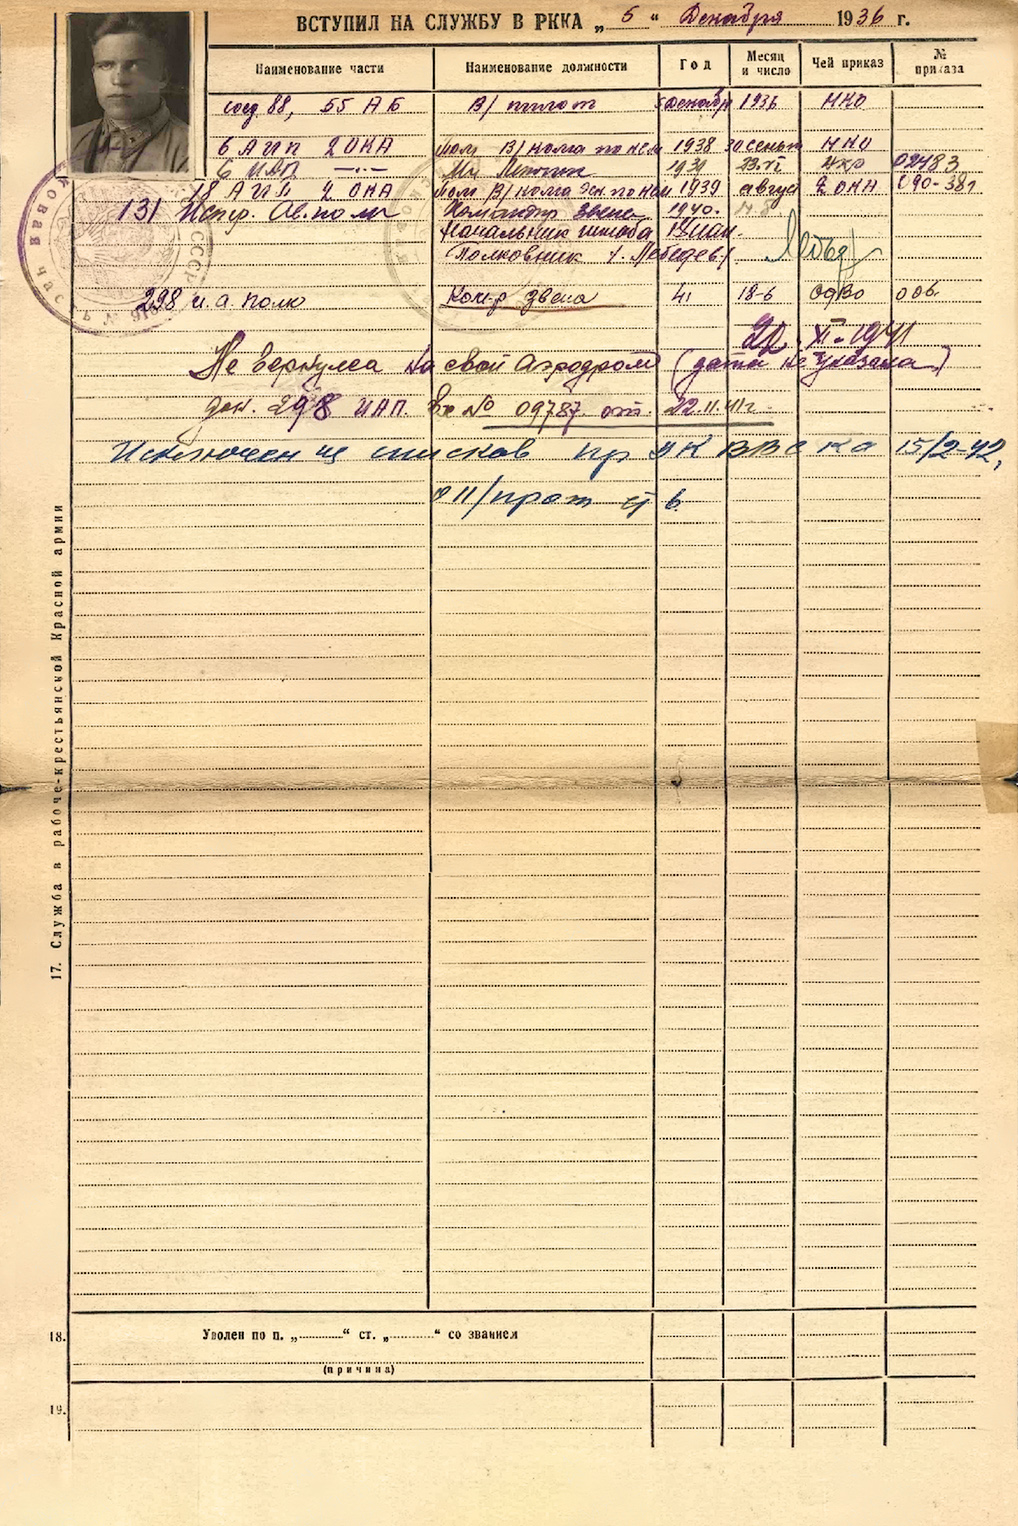 ВСТУПИЛ НА СЛУЖБУ В РККА „ 5 “ Декабря 1936 г.
Наименование части Наименование должности Год Месяц и число Чей приказ № приказа
88, 55 АБ В/ пилот 5 декабр 1936 НКО
6 АИП 2 ОКА пом В/ кома по 1938 30 НКО
6 ИАП —·— Мл Летчик 23. 02483
18 АИП 2 ОКА пом В/ кома эск. по 1939 август 2 ОКА 090-381
131 Истр. Ав. полк Командир звена 1940.
Начальник штаба
Полковник /Лебедев/
298 и. а. полк Ком-р звена 41 18-6 ОдВО 006
22. XI-1941
Не вернулся на свой аэродром (дата не указана)
дон. 298 ИАП. Вх № 09787 от. 22.11.41г.
Исключен из списков пр ВВС КА 15/2-42,
011/
17. Служба в рабоче-крестьянской Красной армии
18. Уволен по п. „ “ ст. „ “ со званием
(причина)
19.